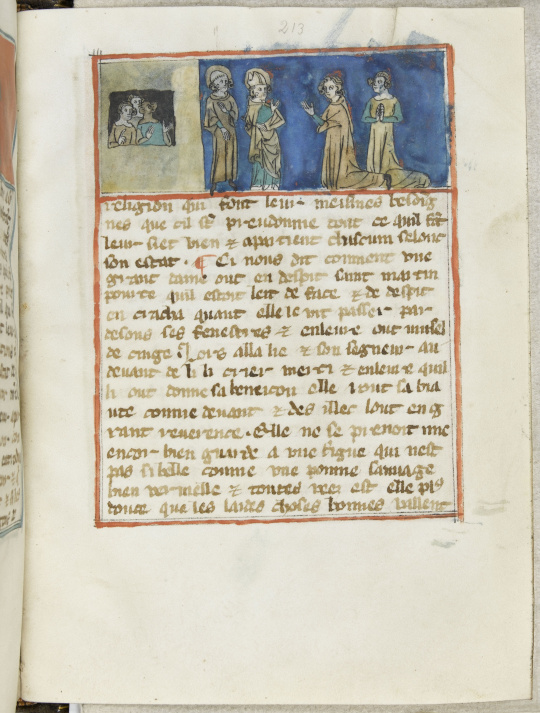 213
religion qui font leur meismes besoig
nes que cil st preudomme tout ce quil font
leur siet bien & apartient chascun selonc
son estat. ¶ Ci nous dit comment vne
grant dame out en despit saint martin
pour ce quil estoit leit de face & de despit
en cracha quant elle le vit passer par
desous ses fenestres & enleure out musel
de cinge Lors alla lie & son seigneur au
deuant de li crier merci & enleure quil
li out donne sa beneicon elle rout sa biau
ute comme deuant & des illec lout en g
rant reuerence. Elle ne se prenoit mie
encor bien garde a vne figue qui nest
pas si belle comme vne pomme sauuage
bien vermeille & toutes uoies est elle pls
douce que les laides choses bonnes uallent